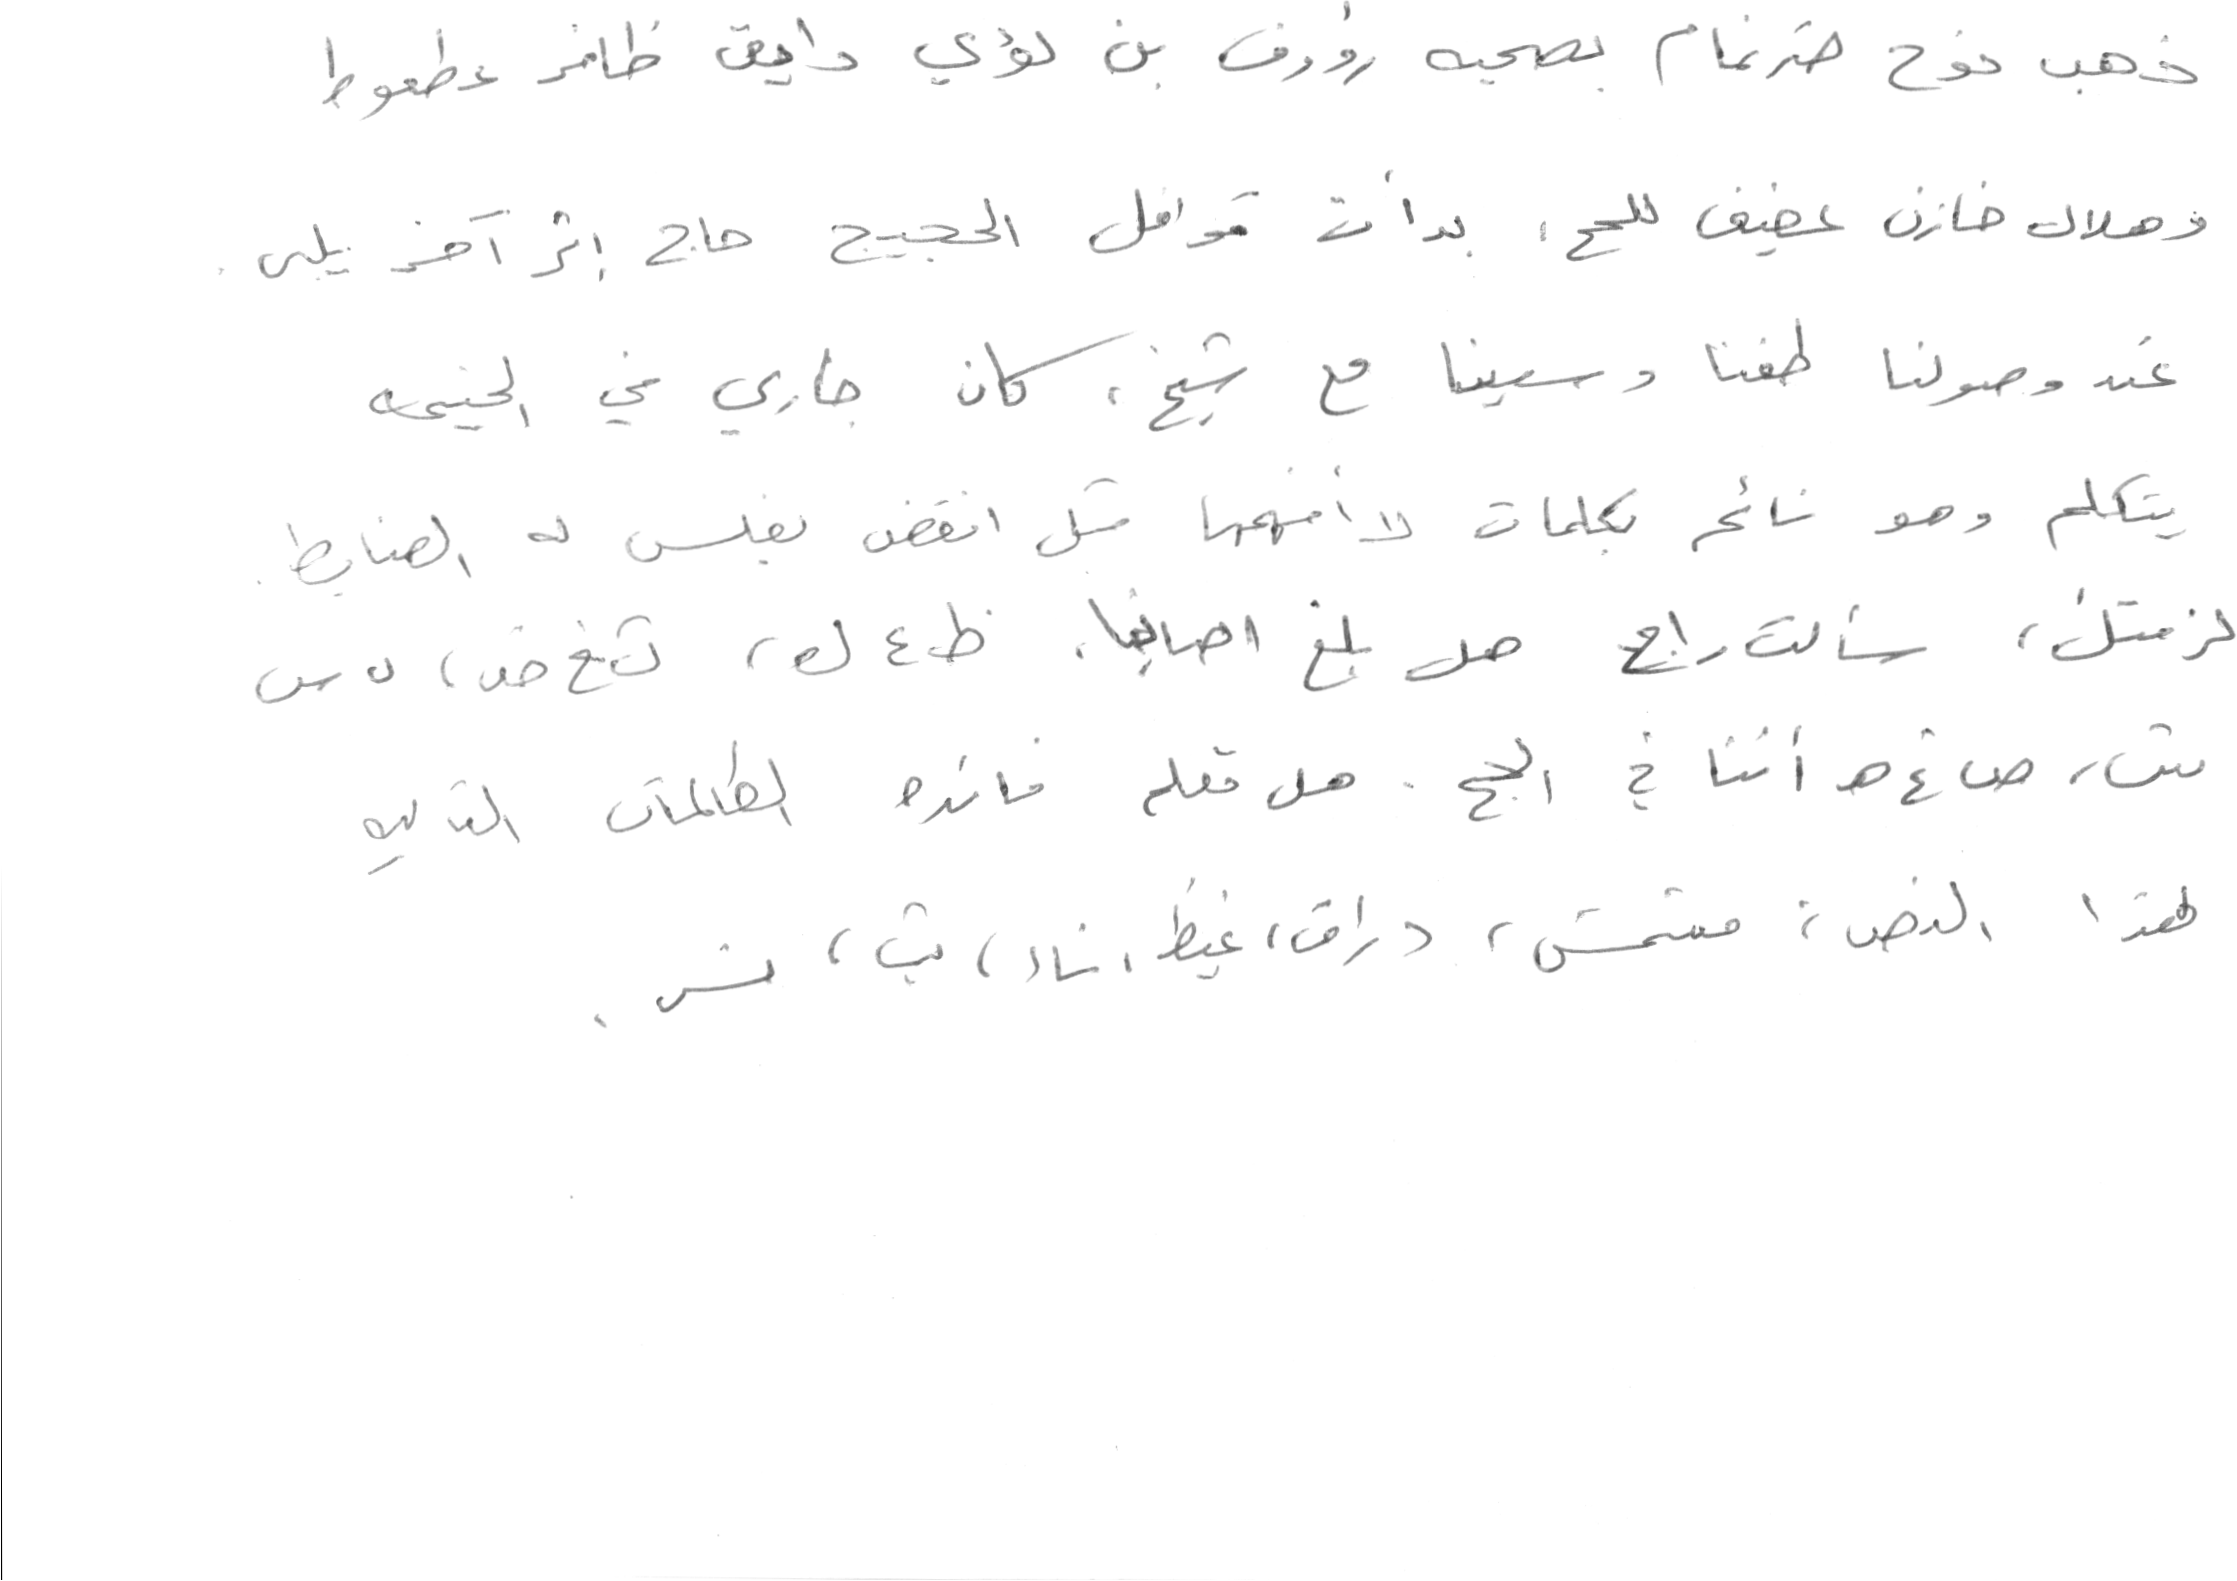 ذهب نوح ضرغام بصحبه رؤوف بن لؤي رايق ظافر عطعوط
و هلال خازن عفيف للحج، بدأت قوافل الحجيج حاج إثر آخر يلبي.
عند وصولنا طفنا وسعينا مع شيخ، كان جاري في الخيمه
يتكلم وهو نائم بكلمات لا أفهمها مثل انقض بفلس له الضابط.
سألت راجح هل بلغ اصابغا، ظ ع ل م، ث غ ض، س
ص غ ه أننا في الحج. هل تعلم فائده الكلمات التاليه
لهذا النص: مشمش، دراق، غيظ، شاد، بث، نش.